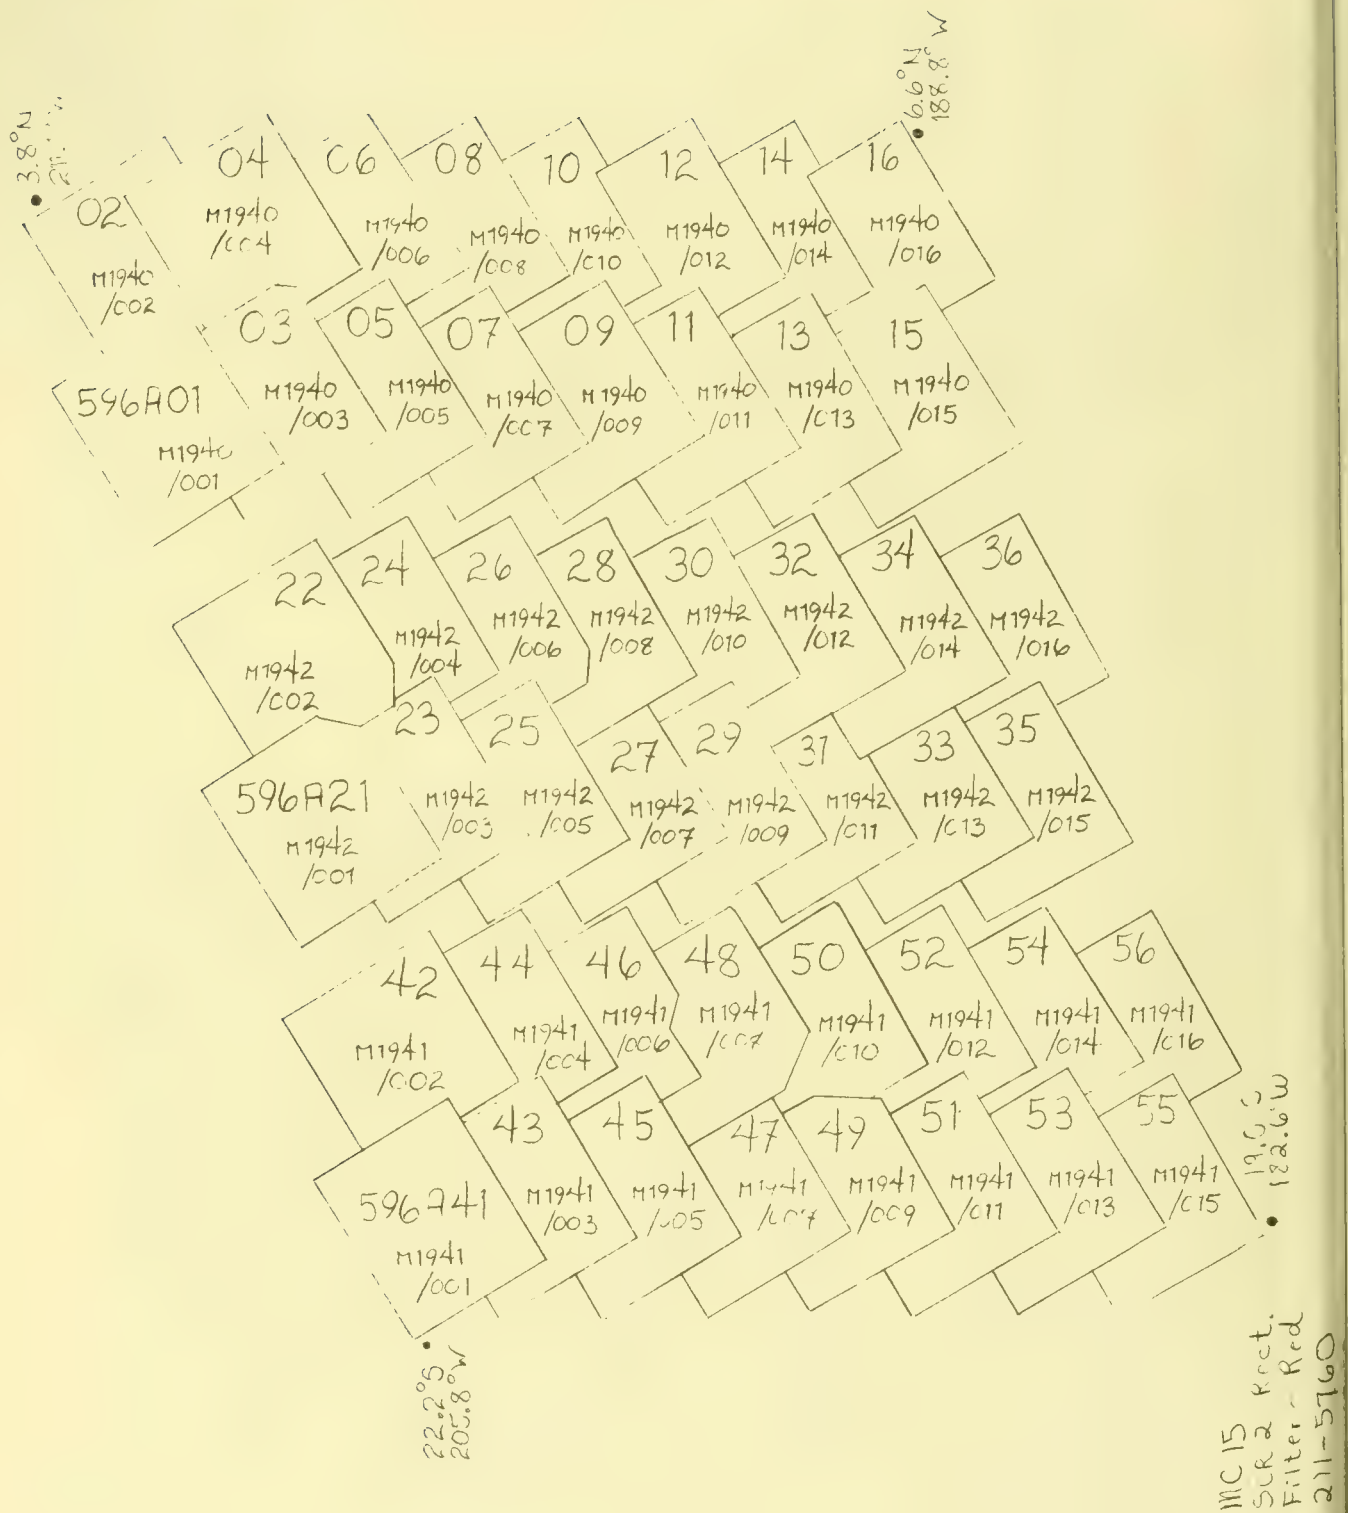 3.8°N
6.6°N
188.8°W
02
M1940
/002
04
M1940
/004
06
M1940
/006
08
M1940
/008
10
M1940
/010
12
M1940
/012
14
M1940
/014
16
M1940
/016
596A01
M1940
/001
03
M1940
/003
05
M1940
/005
07
M1940
/007
09
M1940
/009
11
M1940
/011
13
M1940
/013
15
M1940
/015
22
M1942
/002
24
M1942
/004
26
M1942
/006
28
M1942
/008
30
M1942
/010
32
M1942
/012
34
M1942
/014
36
M1942
/016
596A21
M1942
/001
23
M1942
/003
25
M1942
/005
27
M1942
/007
29
M1942
/009
31
M1942
/011
33
M1942
/013
35
M1942
/015
42
M1941
/002
44
M1941
/004
46
M1941
/006
48
M1941
/007
50
M1941
/010
52
M1941
/012
54
M1941
/014
56
M1941
/016
596A41
M1941
/001
43
M1941
/003
45
M1941
/005
47
M1941
/007
49
M1941
/009
51
M1941
/011
53
M1941
/013
55
M1941
/015
182.6°W
22.2°S
205.8°W
MC 15
SCR 2 Rect.
Filter - Red
211-5760